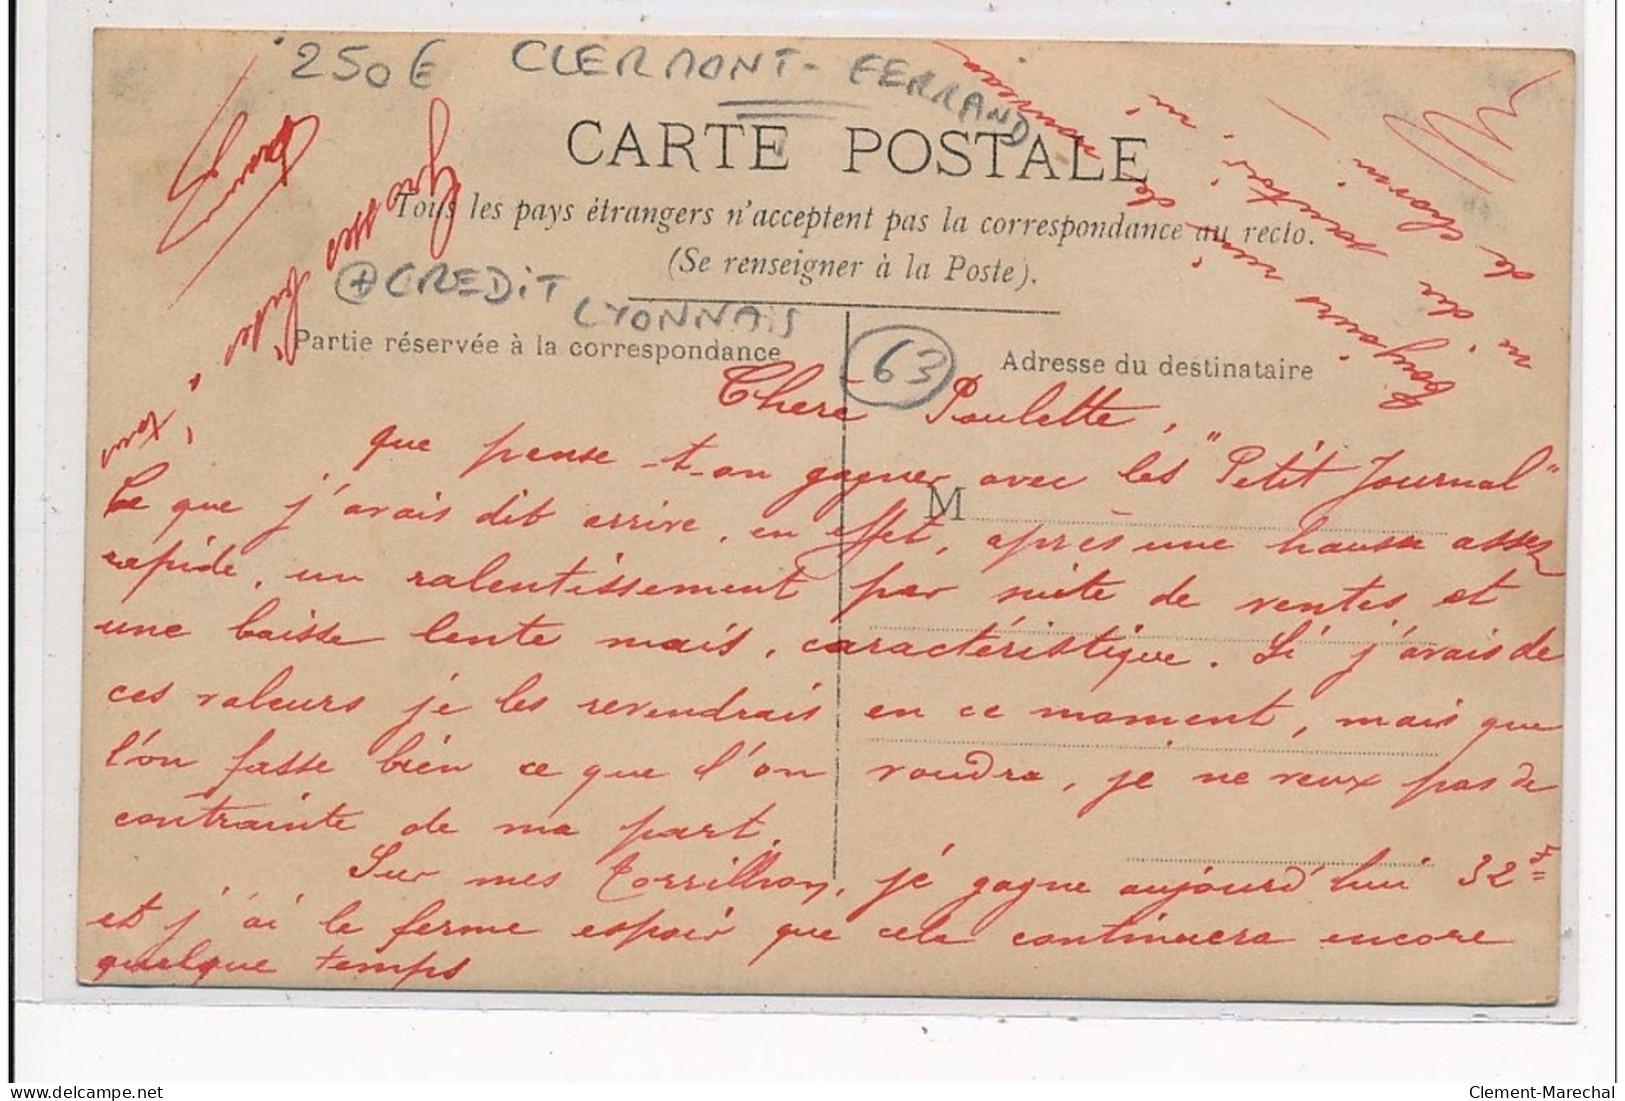 250€ CLERMONT-FERRAND
CARTE POSTALE
Tous les pays étrangers n'acceptent pas la correspondance au recto.
(Se renseigner à la Poste).
+ CREDIT LYONNAIS
Partie réservée à la correspondance
63
Adresse du destinataire
Chere Paulette,
que pense-t-on gagner avec les "Petit Journal"
Ce que j'avais dit arrive, en effet, après une hausse assez
rapide, un ralentissement par suite de ventes et
une baisse lente mais, caractéristique. Si j'avais de
ces valeurs je les revendrais en ce moment, mais que
l'on fasse bien ce que l'on voudra, je ne veux pas de
contrainte de ma part.
Sur mes Torrilhon, je gagne aujourd'hui 32F=
et j'ai le ferme espoir que cela continuera encore
quelque temps
M
toujours rien de nouveau
ni du sautoir ni
de
Clement-Marechal